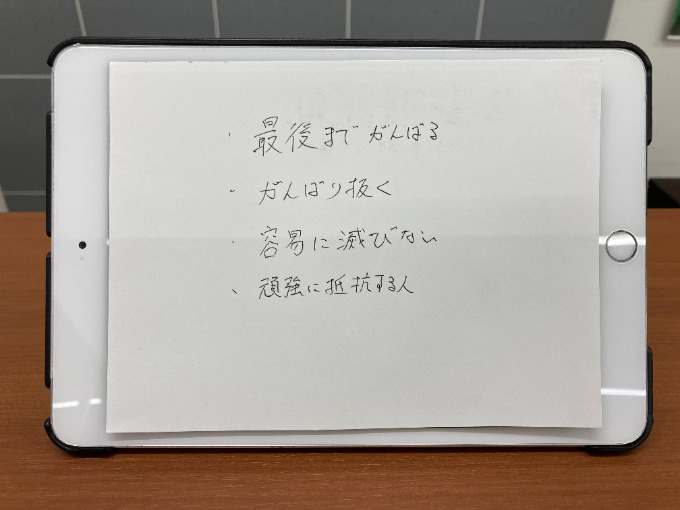 ・最後までがんばる
・がんばり抜く
・容易に滅びない
、頑強に抵抗する人